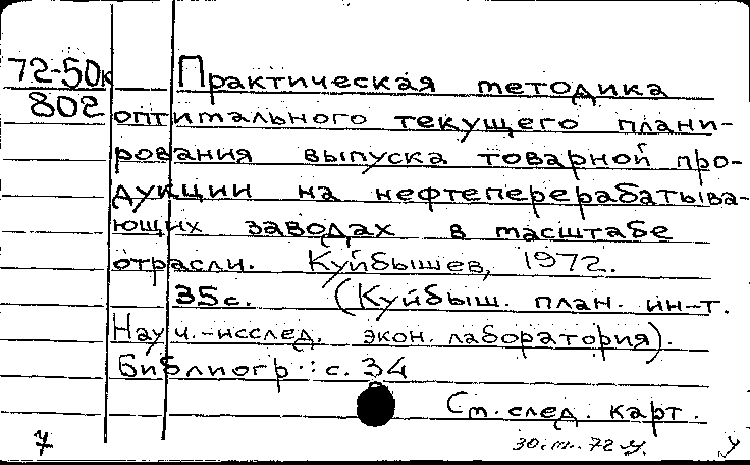 72-50к Практическая методика
802 оптимального текущего плани-
рования выпуска товарной про-
дукции на нефтеперерабатыва-
ющих заводах в масштабе
отрасли. Куйбышев, 1972.
35с. (Куйбыш. план. ин-т.
Науч.-исслед. экон. лаборатория).
Библиогр.: с. 34
См. след. карт.